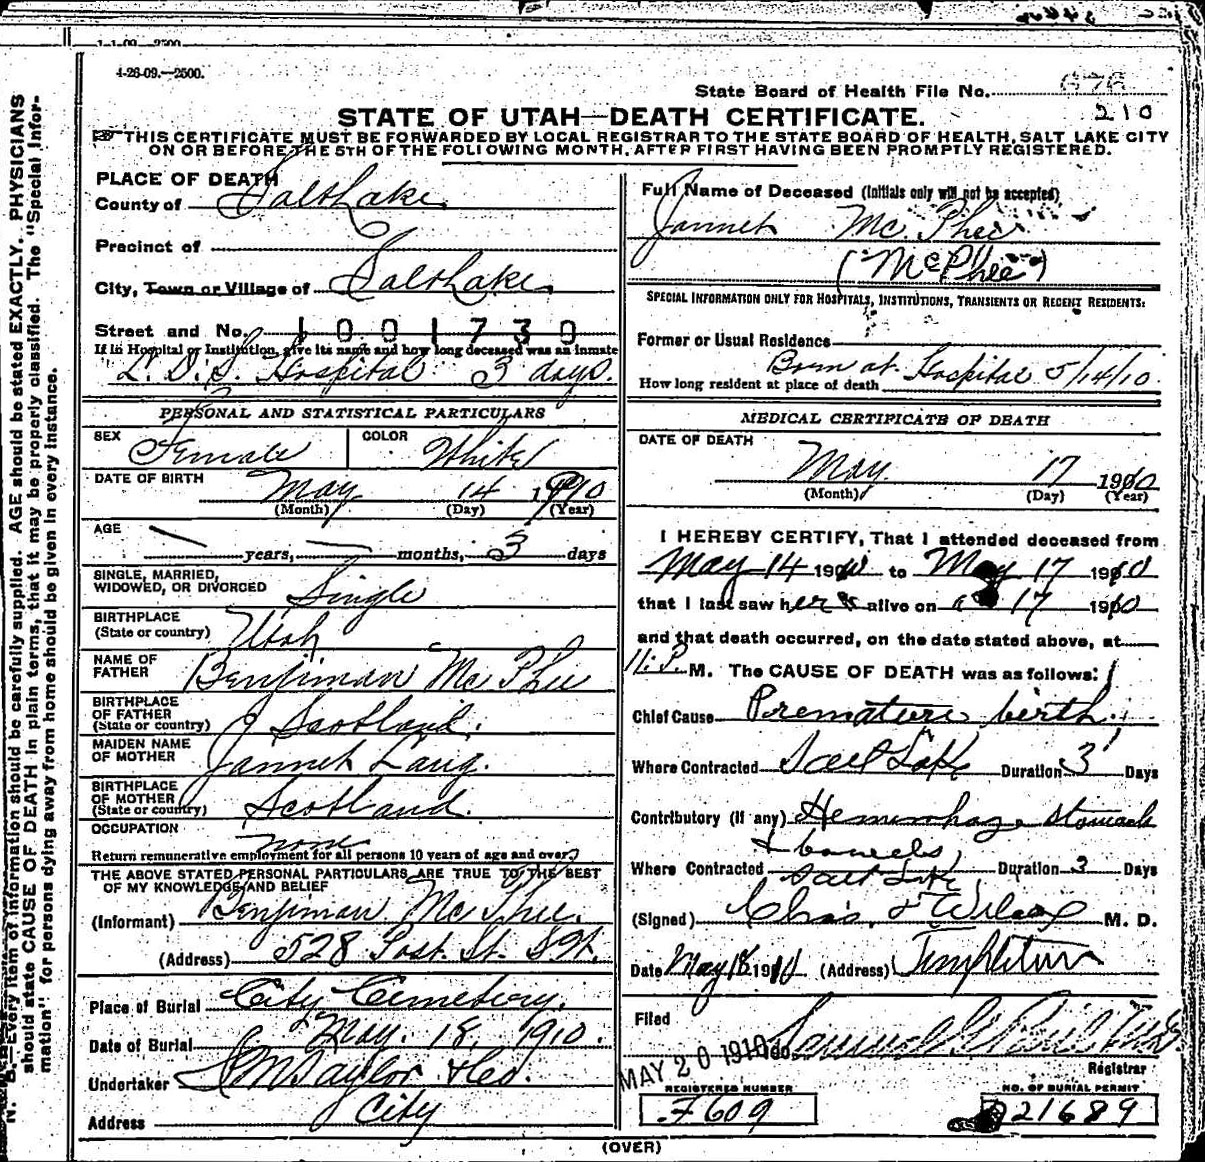 4-26-09.—2500.
State Board of Health File No.
210
STATE OF UTAH—DEATH CERTIFICATE.
THIS CERTIFICATE MUST BE FORWARDED BY LOCAL REGISTRAR TO THE STATE BOARD OF HEALTH, SALT LAKE CITY
ON OR BEFORE THE 5TH OF THE FOLLOWING MONTH, AFTER FIRST HAVING BEEN PROMPTLY REGISTERED.
N. B.—Every item of information should be carefully supplied. AGE should be stated EXACTLY. PHYSICIANS
should state CAUSE OF DEATH in plain terms, that it may be properly classified. The "Special Infor-
mation" for persons dying away from home should be given in every instance.
PLACE OF DEATH
County of Salt Lake
Precinct of
City, Town or Village of Salt Lake
Street and No. 1001730
If in Hospital or Institution, give its name and how long deceased was an inmate
L. D. S. Hospital 3 days.
PERSONAL AND STATISTICAL PARTICULARS
SEX Female COLOR White
DATE OF BIRTH May 14 1910
(Month) (Day) (Year)
AGE — years, — months, 3 days
SINGLE, MARRIED,
WIDOWED, OR DIVORCED Single
BIRTHPLACE
(State or country) Utah
NAME OF
FATHER Benjiman McPhee
BIRTHPLACE
OF FATHER
(State or country) Scotland.
MAIDEN NAME
OF MOTHER Jannet Laug.
BIRTHPLACE
OF MOTHER
(State or country) Scotland.
OCCUPATION none
Return remunerative employment for all persons 10 years of age and over
THE ABOVE STATED PERSONAL PARTICULARS ARE TRUE TO THE BEST
OF MY KNOWLEDGE AND BELIEF
(Informant) Benjiman McPhee.
(Address) 528 Post. St. S.W.
Place of Burial City Cemetery.
Date of Burial May. 18, 1910.
Undertaker S M Taylor & Co.
Address City
Full Name of Deceased (Initials only will not be accepted)
Jannet McPhee
(McPhee)
SPECIAL INFORMATION ONLY FOR HOSPITALS, INSTITUTIONS, TRANSIENTS OR RECENT RESIDENTS:
Former or Usual Residence
Born at Hospital 5/14/10
How long resident at place of death
MEDICAL CERTIFICATE OF DEATH
DATE OF DEATH
May. 17 1910
(Month) (Day) (Year)
I HEREBY CERTIFY, That I attended deceased from
May 14 1910 to May 17 1910
that I last saw her alive on 17 1910
and that death occurred, on the date stated above, at
11 P. M. The CAUSE OF DEATH was as follows:
Chief Cause Premature birth.
Where Contracted Salt Lake Duration 3 Days
Contributory (if any) Hemorrhage stomach
& bowels,
Where Contracted Salt Lake Duration 3 Days
(Signed) Chas. F Wilcox M. D.
Date May 18 1910 (Address) Templeton
Filed
MAY 20 1910
Registrar
REGISTERED NUMBER
F609
NO. OF BURIAL PERMIT
21689
(OVER)